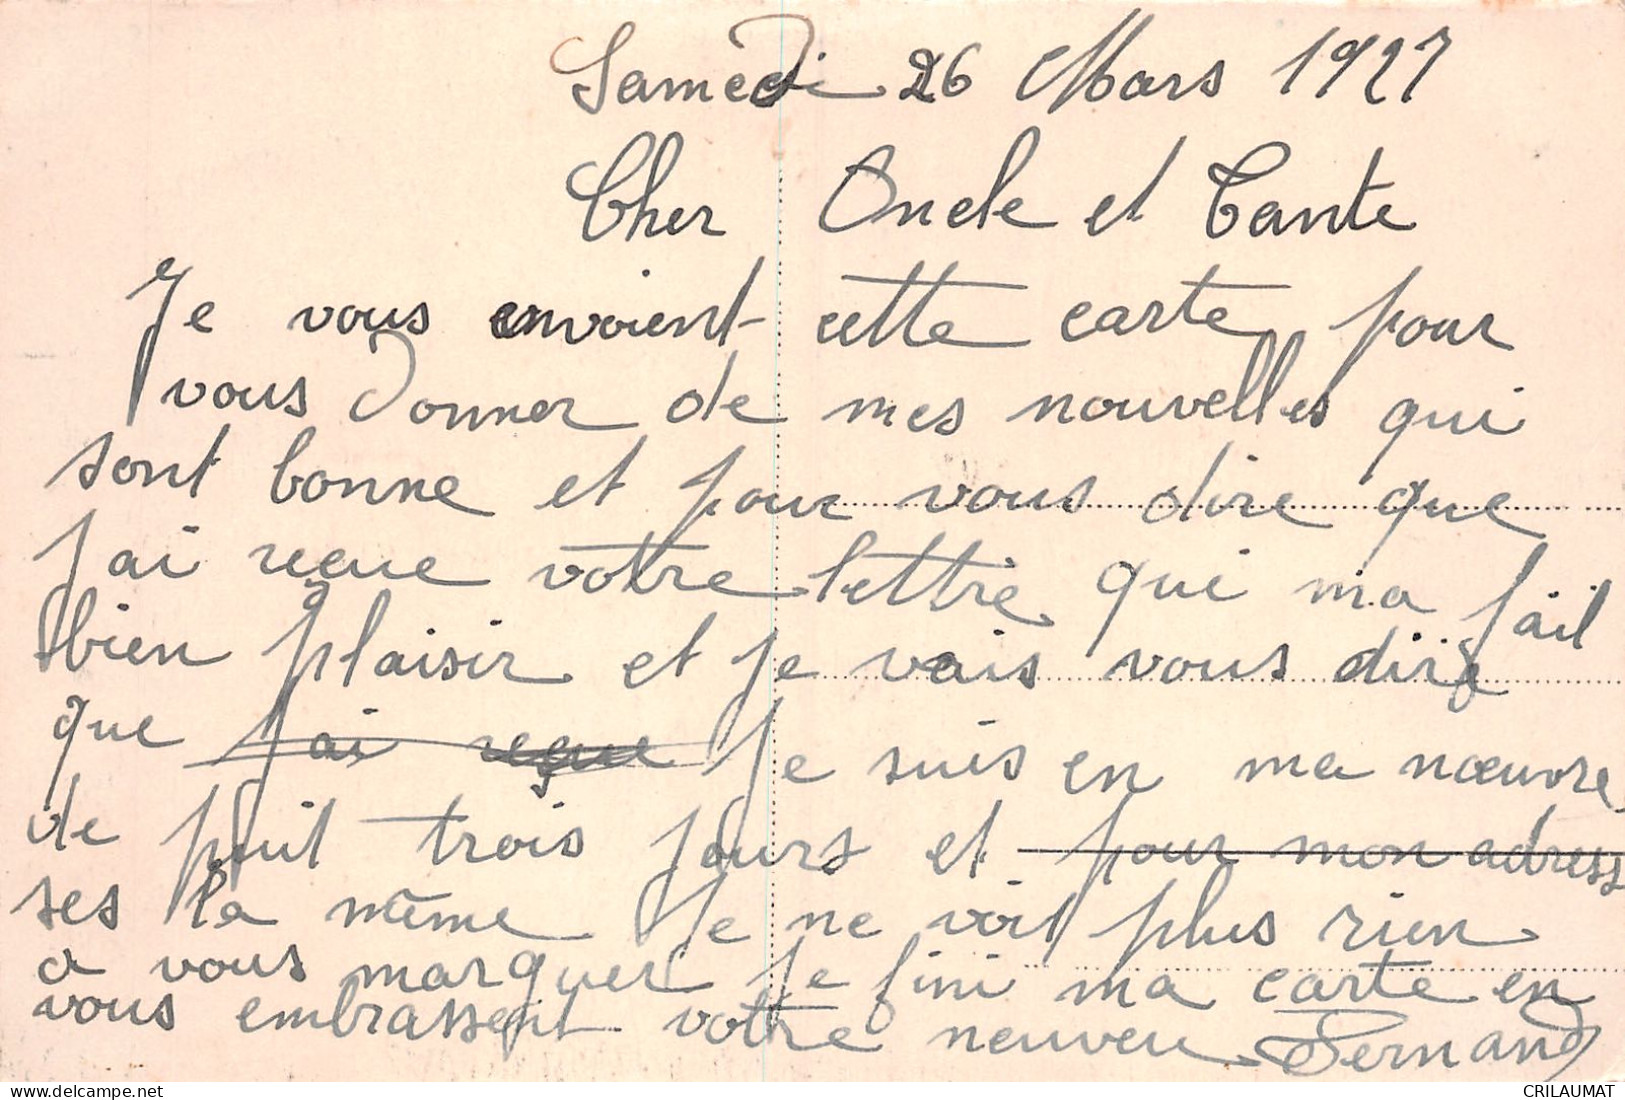 Samedi 26 Mars 1927
Cher Oncle et Tante
Je vous envoient cette carte pour
vous donner de mes nouvelles qui
sont bonne et pour vous dire que
j'ai reçue votre lettre qui ma fait
bien plaisir et je vais vous dire
que j'ai reçue je suis en ma nœuvre
de puit trois jours et pour mon adress
ses la même je ne voit plus rien
a vous marquer je fini ma carte en
vous embrassent votre neuveu Fernand
CRILAUMAT